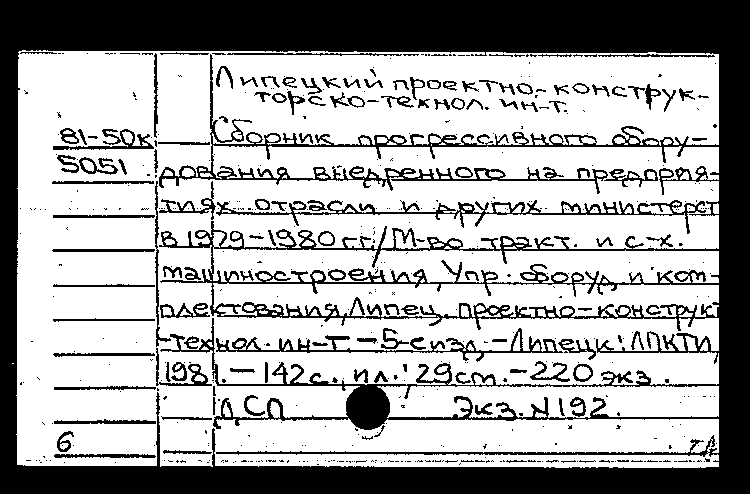 Липецкий проектно-конструк-
торско-технол. ин-т.
81-50к Сборник прогрессивного обору-
5051 дования внедренного на предприя-
тиях отрасли и других министерст
в 1979-1980 гг./М-во тракт. и с-х.
машиностроения, Упр. оборуд. и ком-
плектования, Липец. проектно-конструкт
-технол. ин-т. - 5-е изд. - Липецк: ЛПКТИ,
1981. - 142 с., ил.; 29 см. - 220 экз.
ДСП Экз. N 192.
6